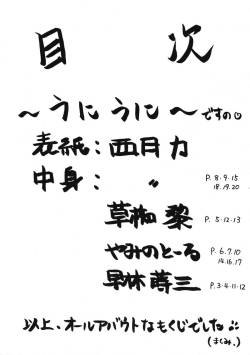 目次
～うにうに～ですの
表紙：西月力
中身：〃 P.8・9・15 18.19.20
草枷黎 P.5・12・13
やみのとーる P.6.7.10 14.16.17
早林蒔三 P.3・4・11・12
以上、オールアバウトなもくじでした
(まくみ。)